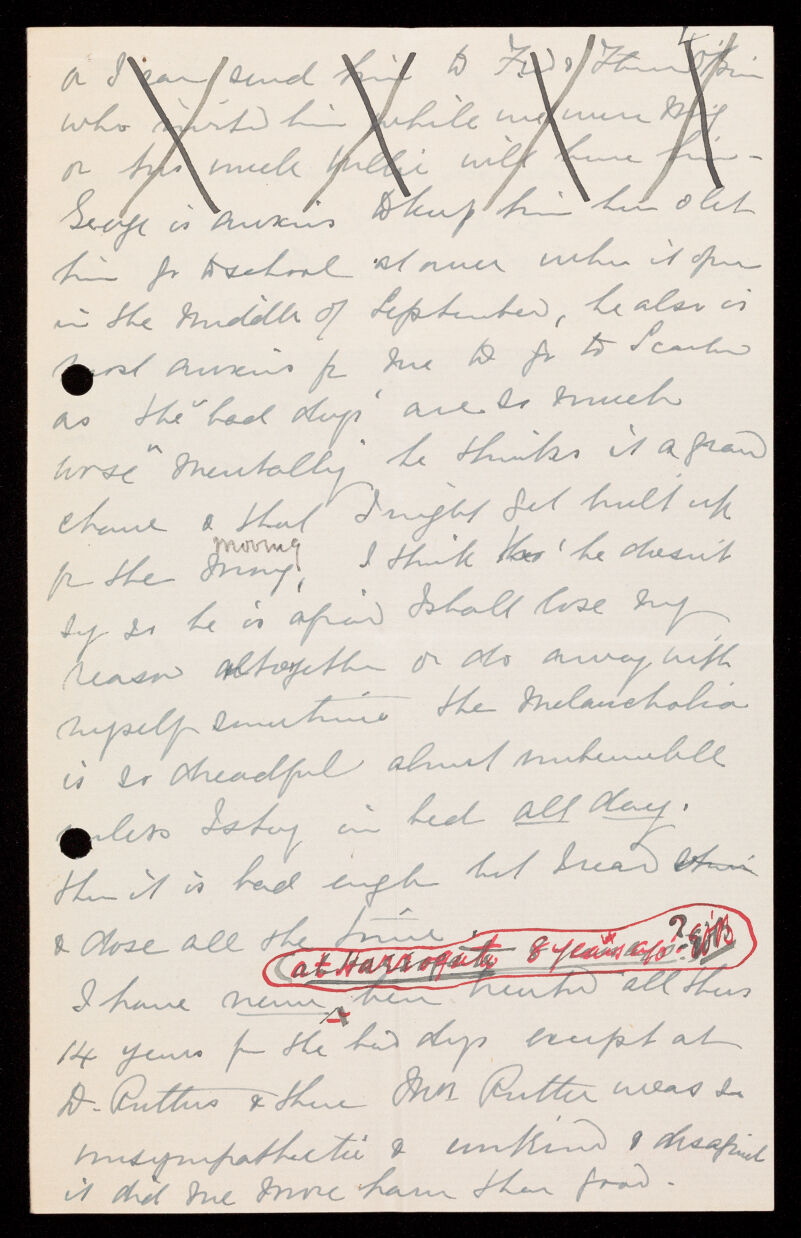 or I can send him to Fred &
who invited him while we were
or this week Willie will have him -
George is anxious to keep him here & let
him go to school at once when it opens
in the middle of September, he also is
most anxious for me to go to Scarbro
as the "bad days" are so much
worse "mentally he thinks it a grand
chance & that I might get built up
for the moving, moving I think tho' he doesn't
say so he is afraid I shall lose my
reason altogether or do away with
myself sometime the Melancholia
is so dreadful almost unbearable
unless I stay in bed all day.
then it is bad enough but I read
& dose all the time.
at Harrogate 8 years ago?
I have never been treated all these
14 years for the bad days except at
Dr. Rutters & there Mrs Rutter was so
unsympathetic & unkind &
it did me more harm than good.